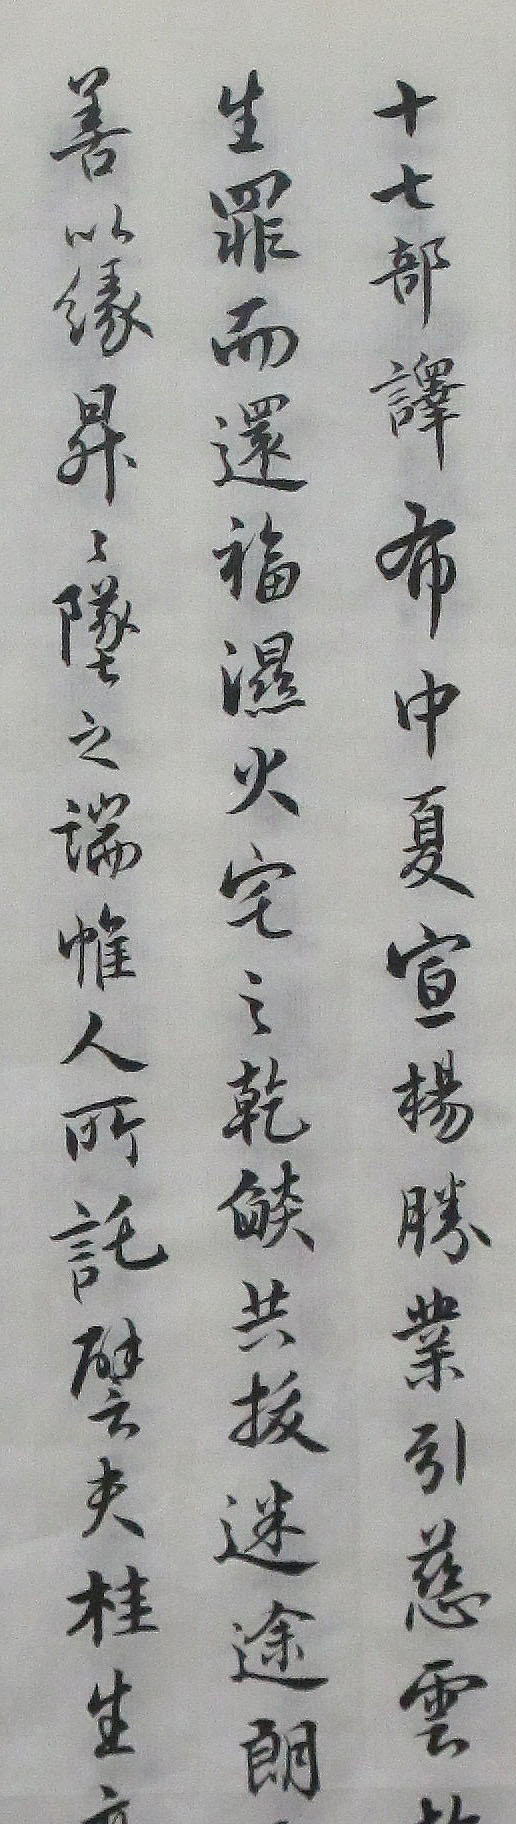 十七部譯布中夏宣楊勝業引慈雲
生罪而還福濕火宅之乾燄共拔迷途朗
善以緣昇〻墜之端惟人所託譬夫桂生